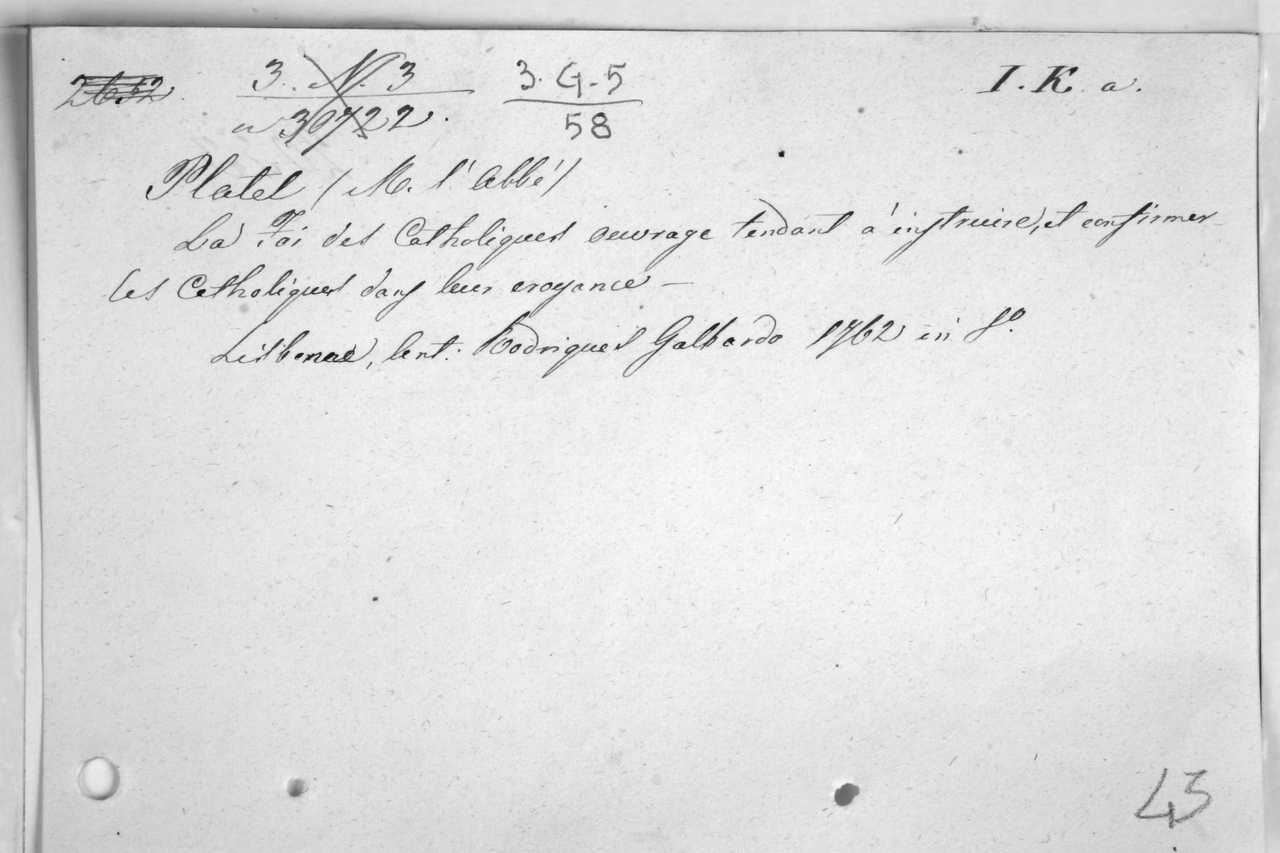 2652 3. N. 3 3. G-5 I. K. a.
n 30722. 58
Platel (M. l'Abbé)
La Foi des Catholiques ouvrage tendant á instruire, et confirmer
les Catholiques dans leur croyance —
Lisbonne, Rodrigues Galhardo 1762 in 8º.
43